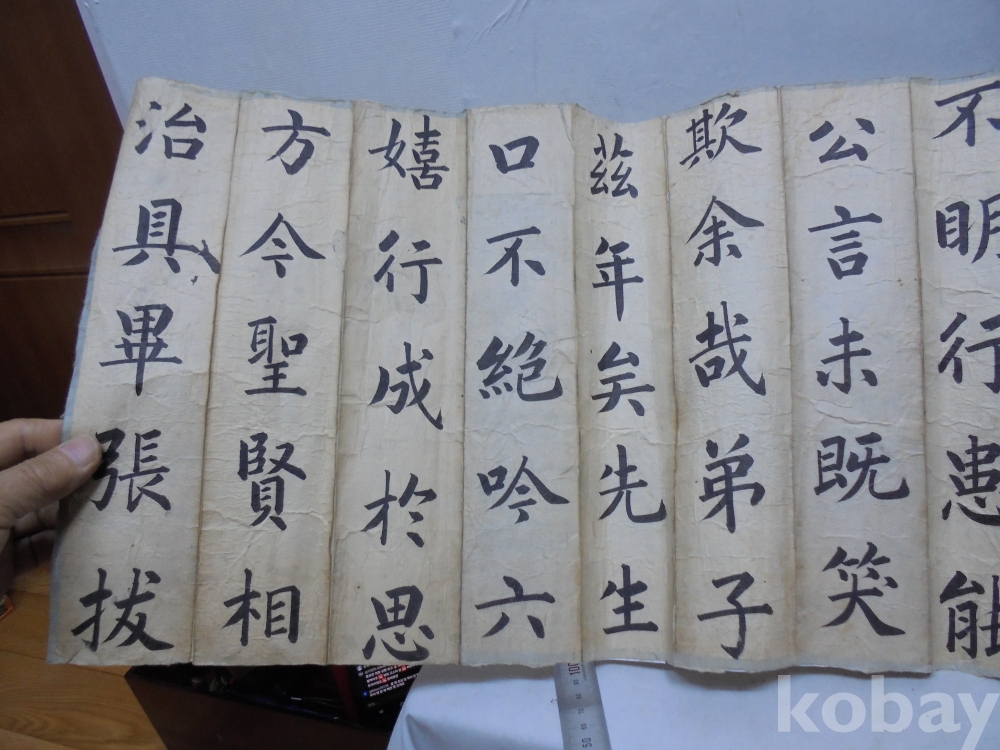 不明行患能
公言未既笑
欺余哉弟子
茲年矣先生
口不絕吟六
嬉行成於思
方今聖賢相
治具畢張拔
100
50
kobay